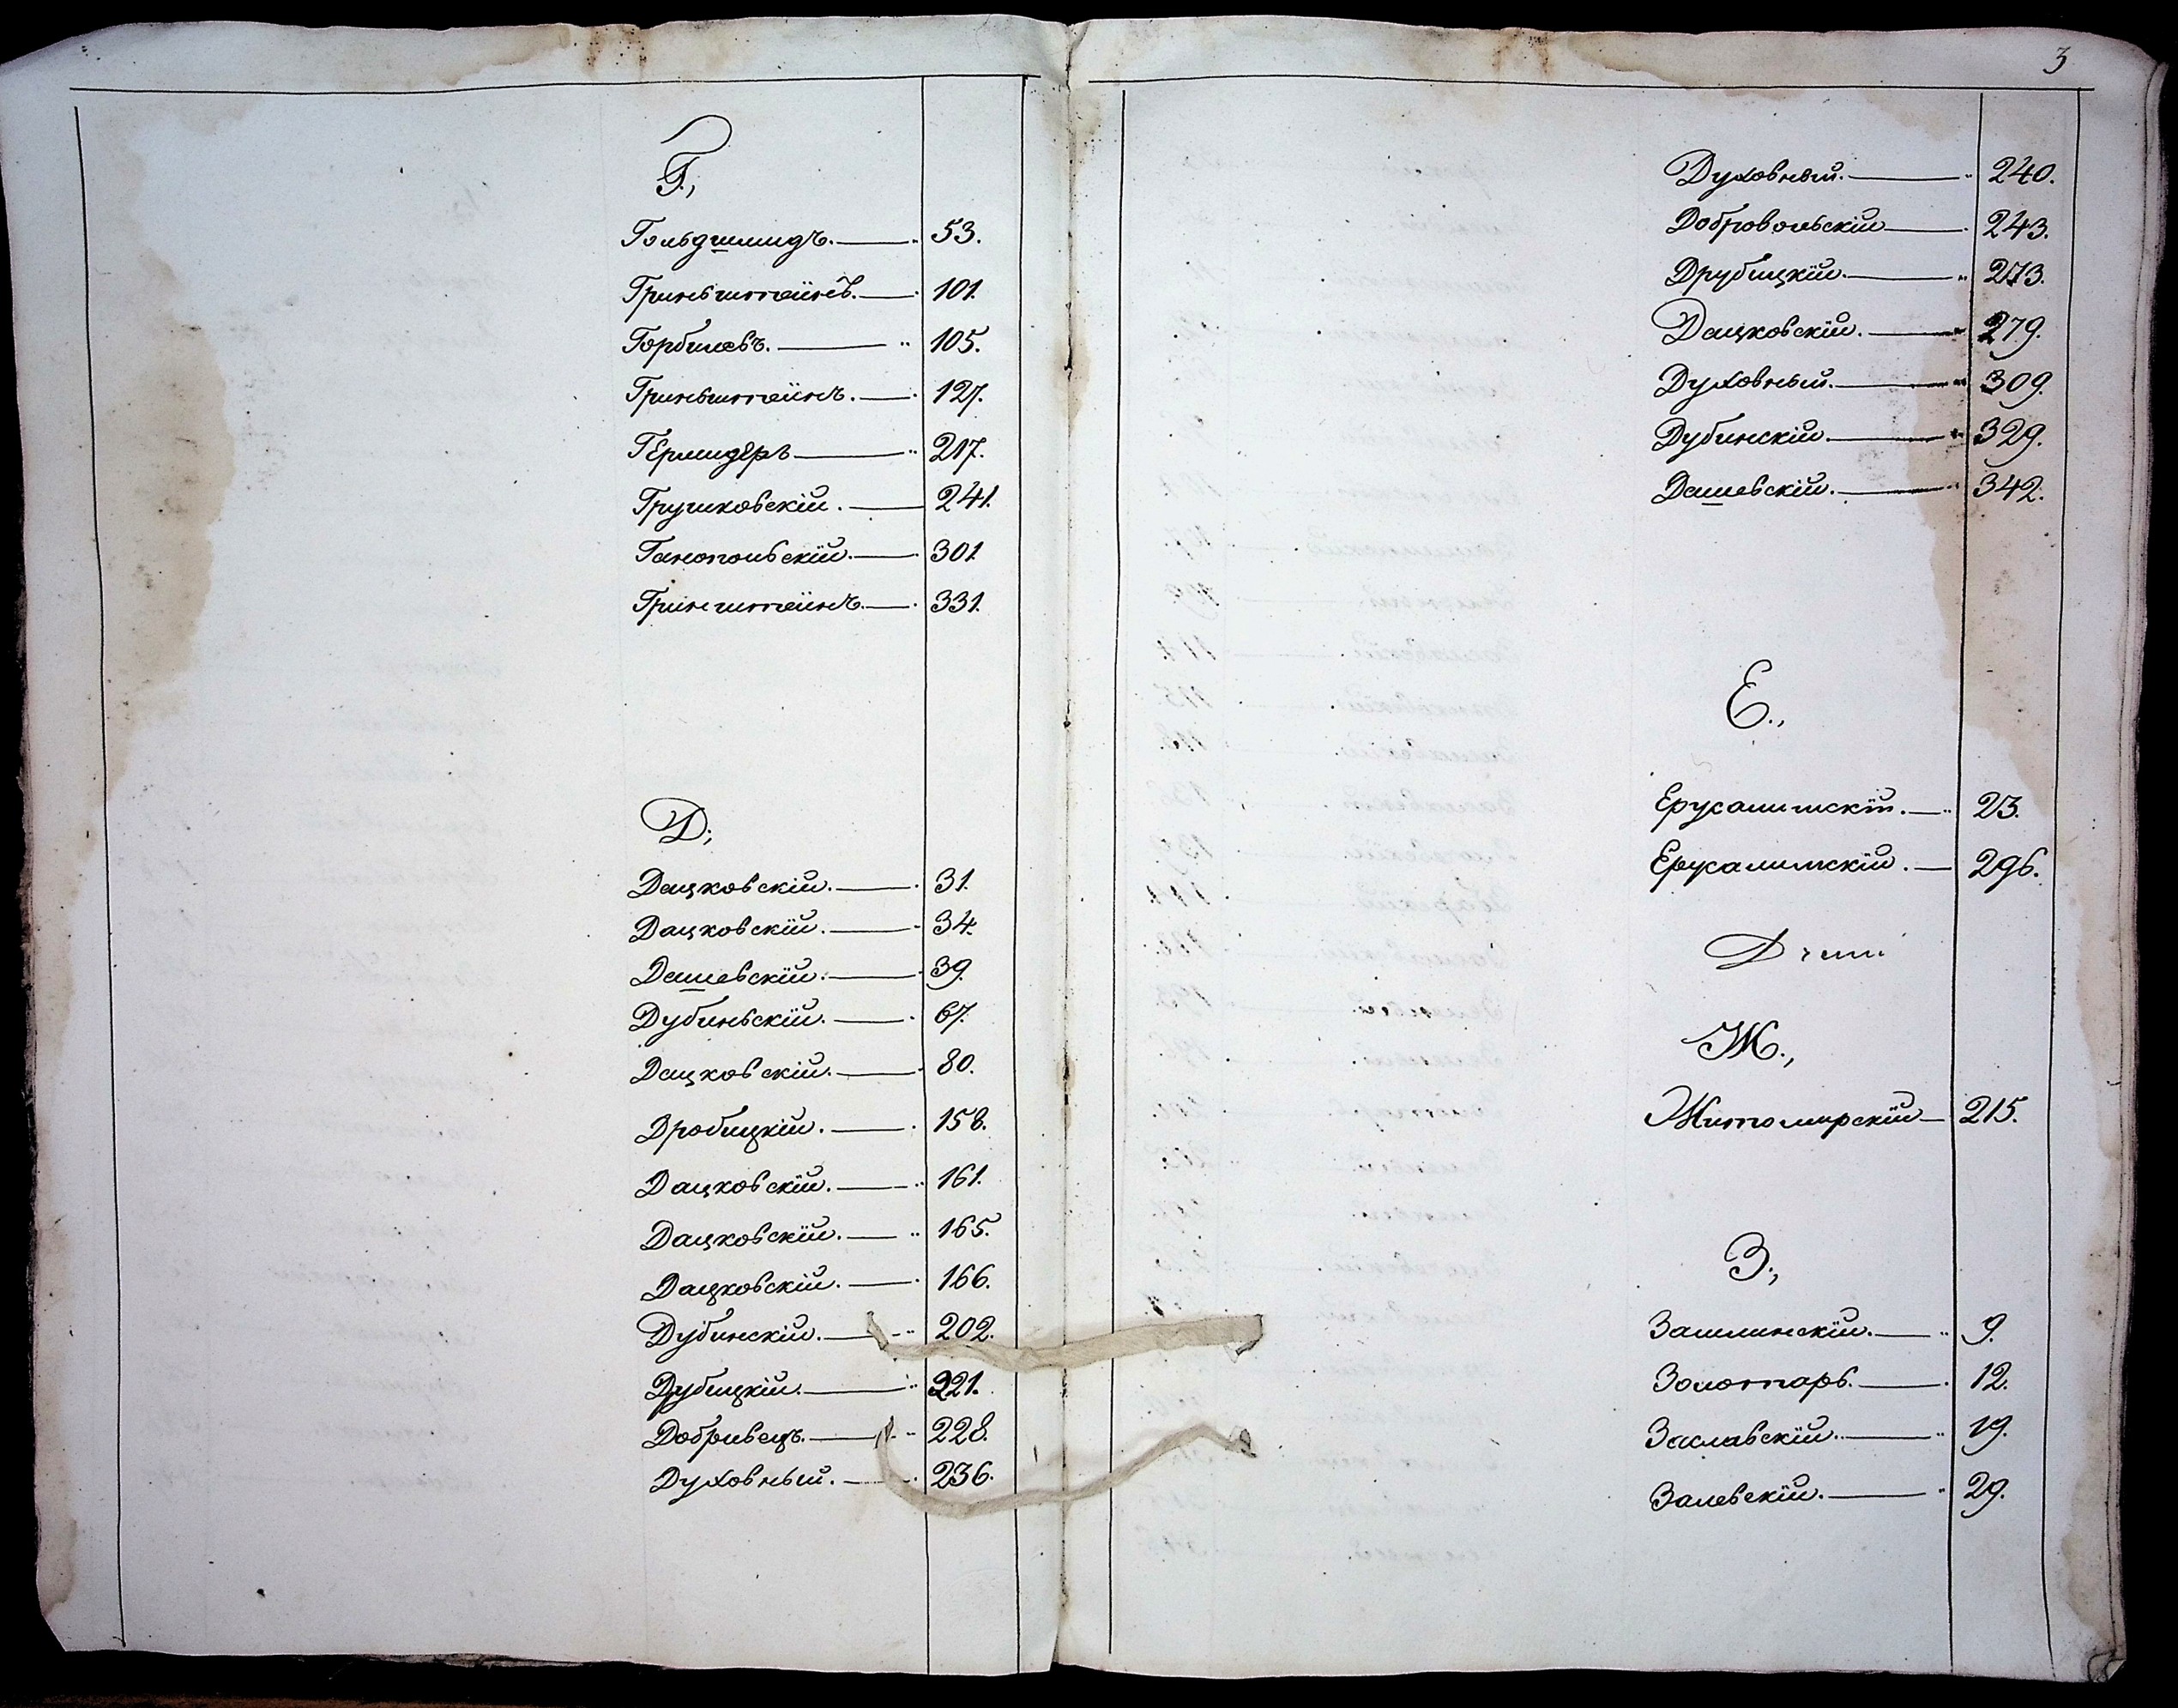 Г.,
Гольдшмидъ. 53.
Гриньштейнъ. 101.
Горбилевъ. 105.
Гриньштейнъ. 127.
Гершидеръ 217.
Грушковскій. 241.
Ганопольскій. 301
Гринштейнъ. 331.
Д;
Дацковскій. 31.
Дацковскій. 34.
Дашевскій. 39.
Дубиньскій. 67.
Дацковскій. 80.
Дробицкій. 158.
Дацковскій. 161.
Дацковскій. 165.
Дацковскій. 166.
Дубинскій. 202.
Дубицкій. 221.
Добривецъ. 228.
Духовный. 236.
3
Духовный. 240.
Добровольскій 243.
Друбицкій. 273.
Дацковскій. 279.
Духовный. 309.
Дубинскій. 329.
Дашевскій. 342.
Е.,
Ерусалимскій. 23.
Ерусалимскій. 296.
Ж.,
Житомирскій 215.
З.,
Зашлинскій. 9.
Золотарь. 12.
Заславскій. 19.
Залевскій. 29.